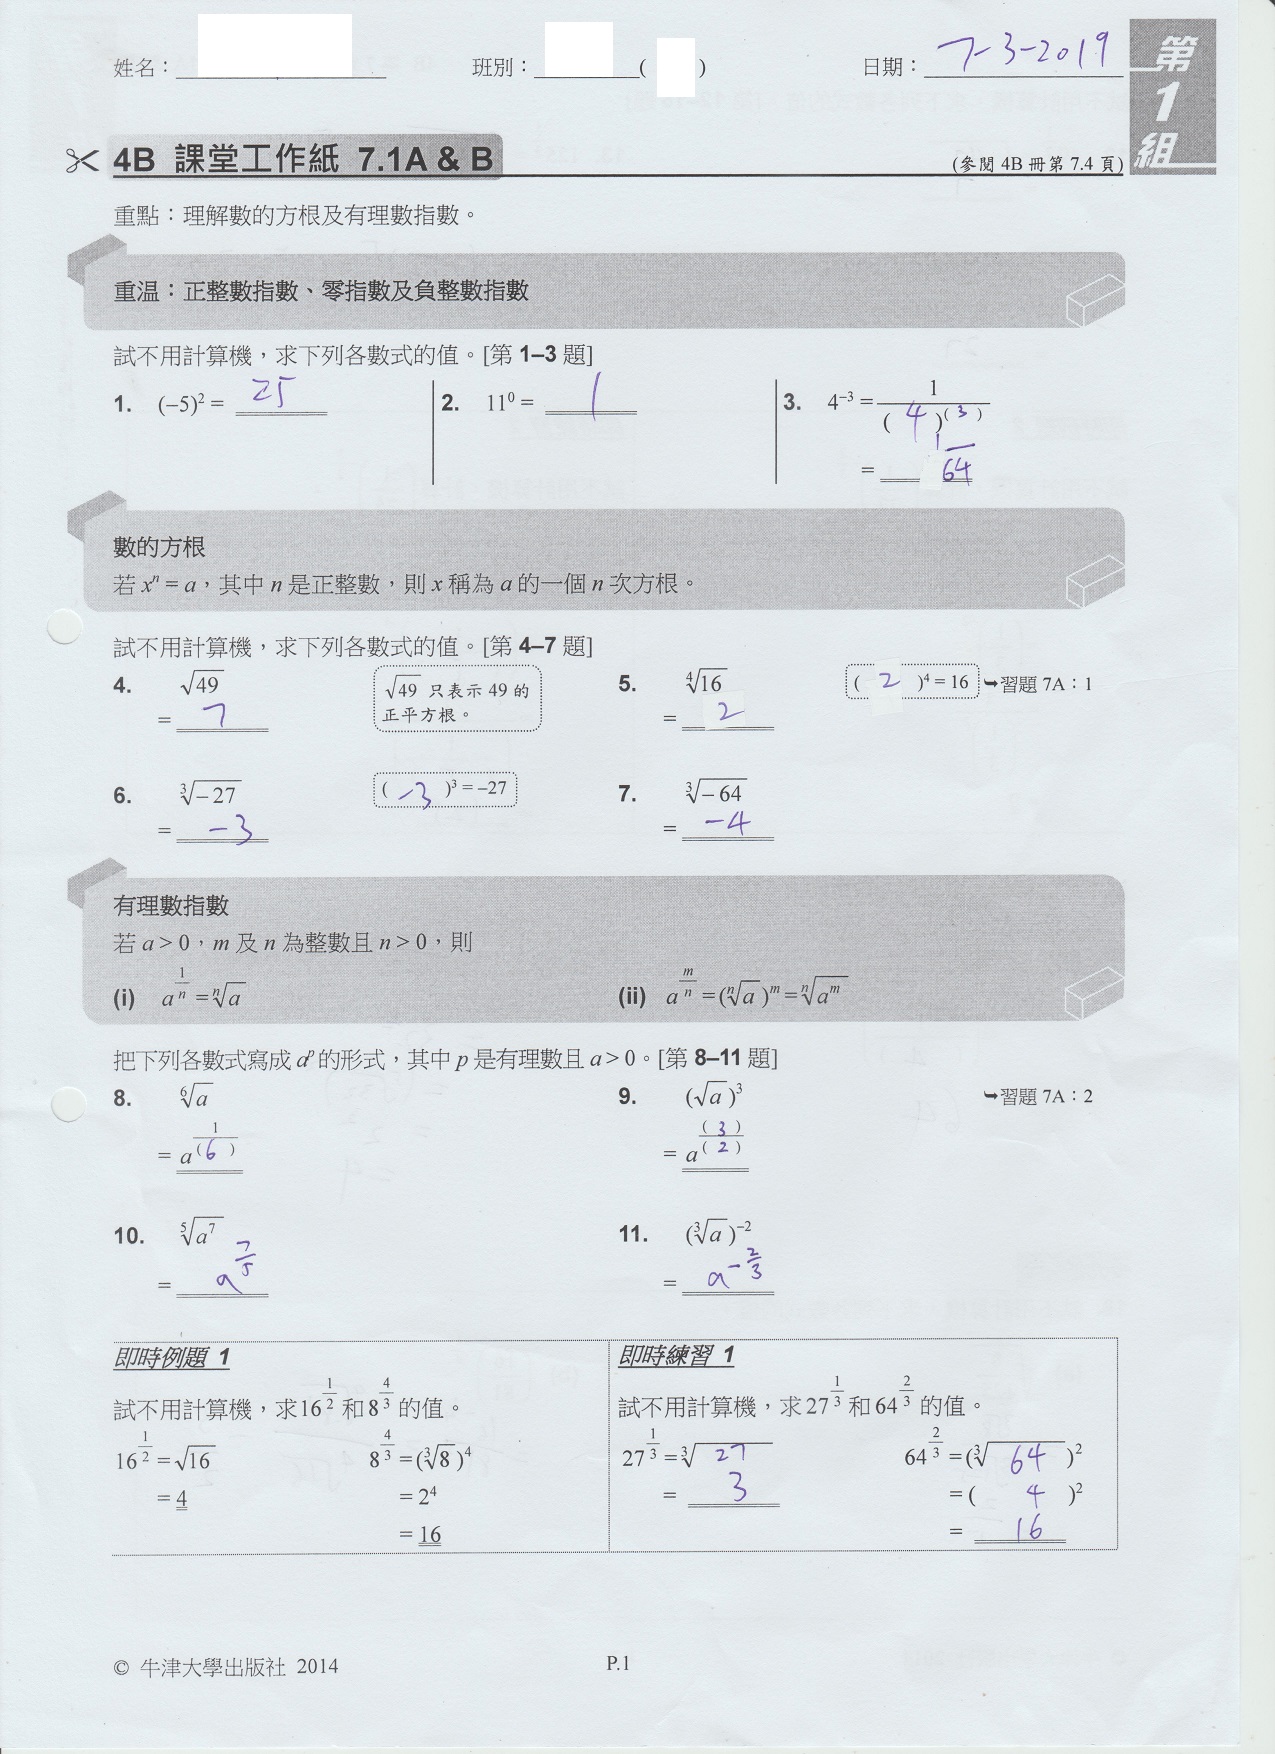 姓名：
班別： ( )
日期： 7-3-2019
第1組
4B 課堂工作紙 7.1A & B
(參閱 4B 冊第 7.4 頁)
重點：理解數的方根及有理數指數。
重温：正整數指數、零指數及負整數指數
試不用計算機，求下列各數式的值。[第 1–3 題]
1. (–5)² = 25
2. 11⁰ = 1
3. 4⁻³ = 1/(4)^(3)
= 1/64
數的方根
若 xⁿ = a，其中 n 是正整數，則 x 稱為 a 的一個 n 次方根。
試不用計算機，求下列各數式的值。[第 4–7 題]
4. √49
= 7
√49 只表示 49 的
正平方根。
5. ⁴√16
= 2
( 2 )⁴ = 16
➥習題 7A：1
6. ³√–27
= –3
( –3 )³ = –27
7. ³√–64
= –4
有理數指數
若 a > 0，m 及 n 為整數且 n > 0，則
(i) a^(1/n) = ⁿ√a
(ii) a^(m/n) = (ⁿ√a)^m = ⁿ√a^m
把下列各數式寫成 a^p 的形式，其中 p 是有理數且 a > 0。[第 8–11 題]
8. ⁶√a
= a^(1/(6))
9. (√a)³
= a^((3)/(2))
➥習題 7A：2
10. ⁵√a⁷
= a^(7/5)
11. (³√a)⁻²
= a^(–2/3)
即時例題 1
試不用計算機，求16^(1/2) 和 8^(4/3) 的值。
16^(1/2) = √16
= 4
8^(4/3) = (³√8)⁴
= 2⁴
= 16
即時練習 1
試不用計算機，求 27^(1/3) 和 64^(2/3) 的值。
27^(1/3) = ³√27
= 3
64^(2/3) = (³√64)²
= ( 4 )²
= 16
© 牛津大學出版社 2014
P.1